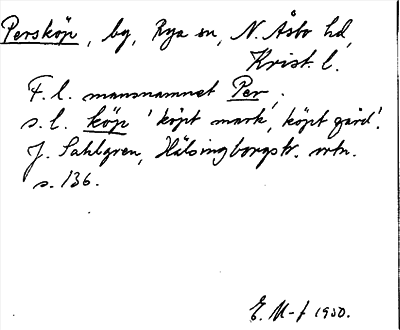 Persköp, by, Rya sn, N. Åsbo hd,
Krist. l.
F. l. mansnamnet Per.
s. l. köp 'köpt mark', köpt gård'.
J. Sahlgren, Hälsingborgstr. ortn.
s. 136.
E. M-f 1950.